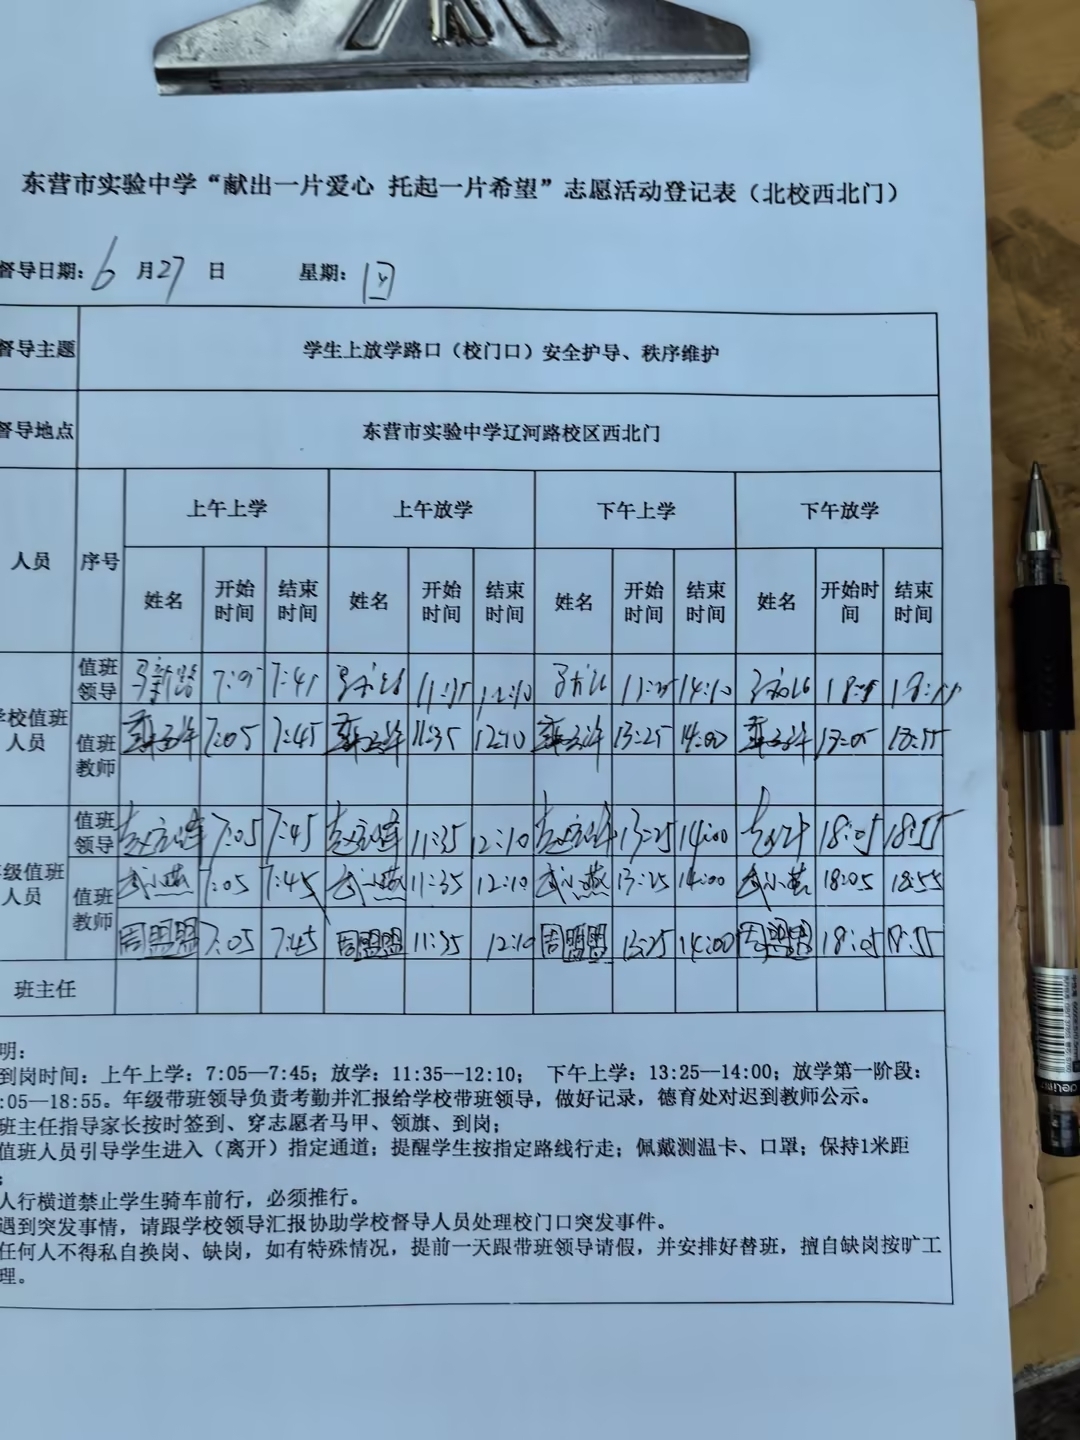 东营市实验中学“献出一片爱心 托起一片希望”志愿活动登记表（北校西北门）
督导日期：6月27日 星期：四
督导主题 学生上放学路口（校门口）安全护导、秩序维护
督导地点 东营市实验中学辽河路校区西北门
人员 序号 上午上学 上午放学 下午上学 下午放学
姓名 开始时间 结束时间 姓名 开始时间 结束时间 姓名 开始时间 结束时间 姓名 开始时间 结束时间
学校值班人员 值班领导 12:10 14:10
值班教师 7:05 7:45 11:35 12:10 13:25 14:00 18:55
年级值班人员 值班领导 7:05 7:45 11:35 12:10 13:25 14:00 18:05 18:55
值班教师 武小燕 7:05 7:45 武小燕 11:35 12:10 武小燕 13:25 14:00 武小燕 18:05 18:55
周盟盟 7:05 7:45 周盟盟 11:35 12:10 周盟盟 13:25 14:00 周盟盟 18:05 18:55
班主任
明：
到岗时间：上午上学：7:05—7:45；放学：11:35--12:10； 下午上学：13:25—14:00；放学第一阶段：
:05—18:55。年级带班领导负责考勤并汇报给学校带班领导，做好记录，德育处对迟到教师公示。
班主任指导家长按时签到、穿志愿者马甲、领旗、到岗；
值班人员引导学生进入（离开）指定通道；提醒学生按指定路线行走；佩戴测温卡、口罩；保持1米距
；
人行横道禁止学生骑车前行，必须推行。
遇到突发事情，请跟学校领导汇报协助学校督导人员处理校门口突发事件。
任何人不得私自换岗、缺岗，如有特殊情况，提前一天跟带班领导请假，并安排好替班，擅自缺岗按旷工
理。
deli